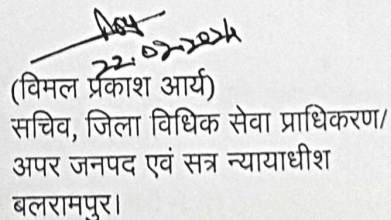 22.02.2024
(विमल प्रकाश आर्य)
सचिव, जिला विधिक सेवा प्राधिकरण/
अपर जनपद एवं सत्र न्यायाधीश
बलरामपुर।